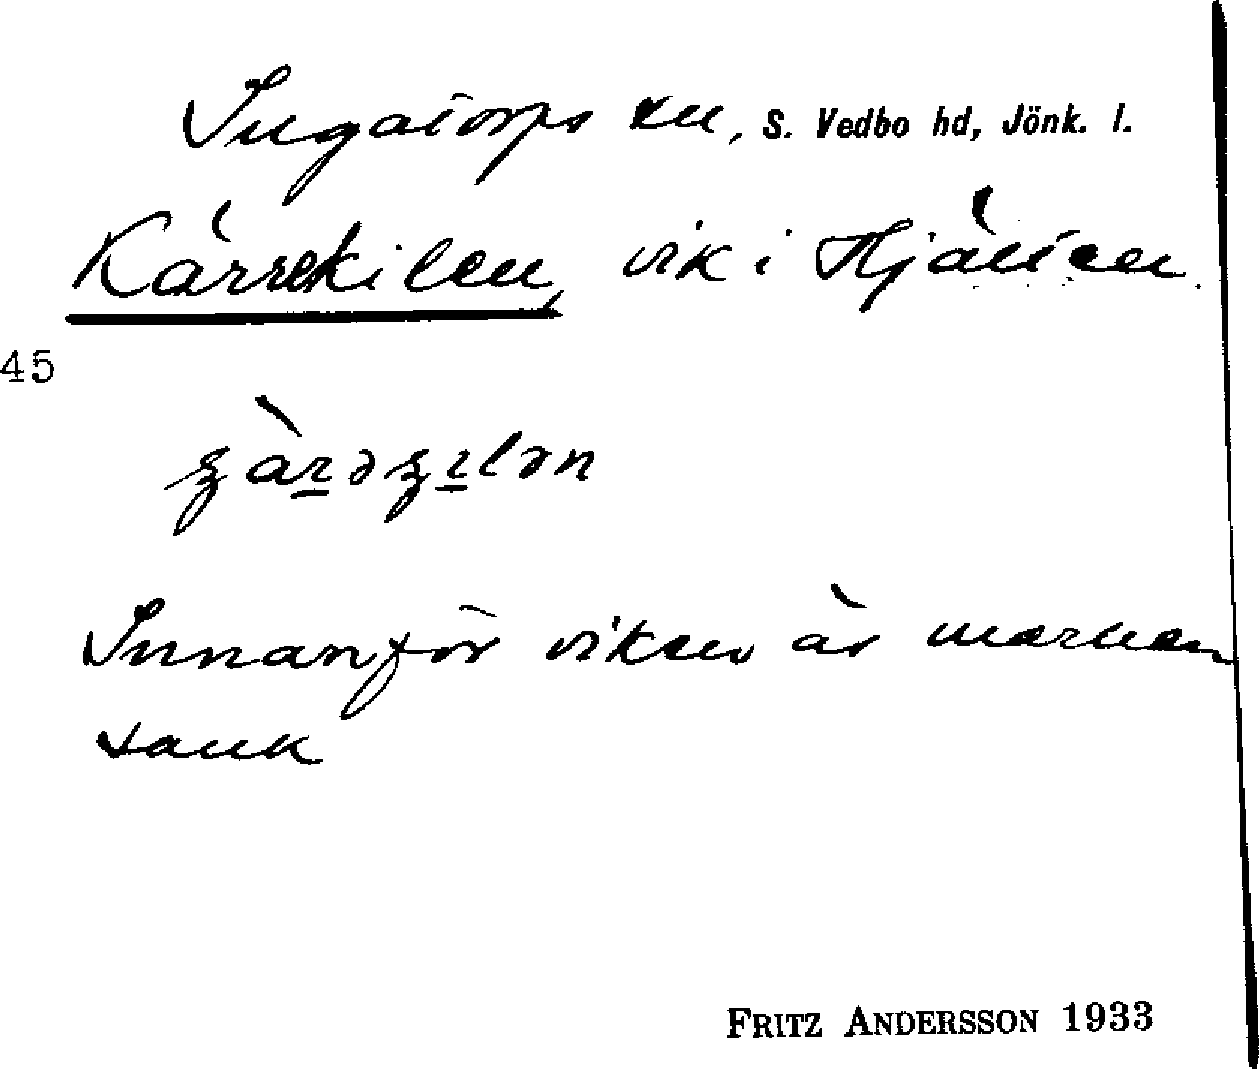 Ingatorps sn, S. Vedbo hd, Jönk. l.
Kärrekilen, vik i Hjälten.
45
Innanför viken är marken
sank
FRITZ ANDERSSON 1933